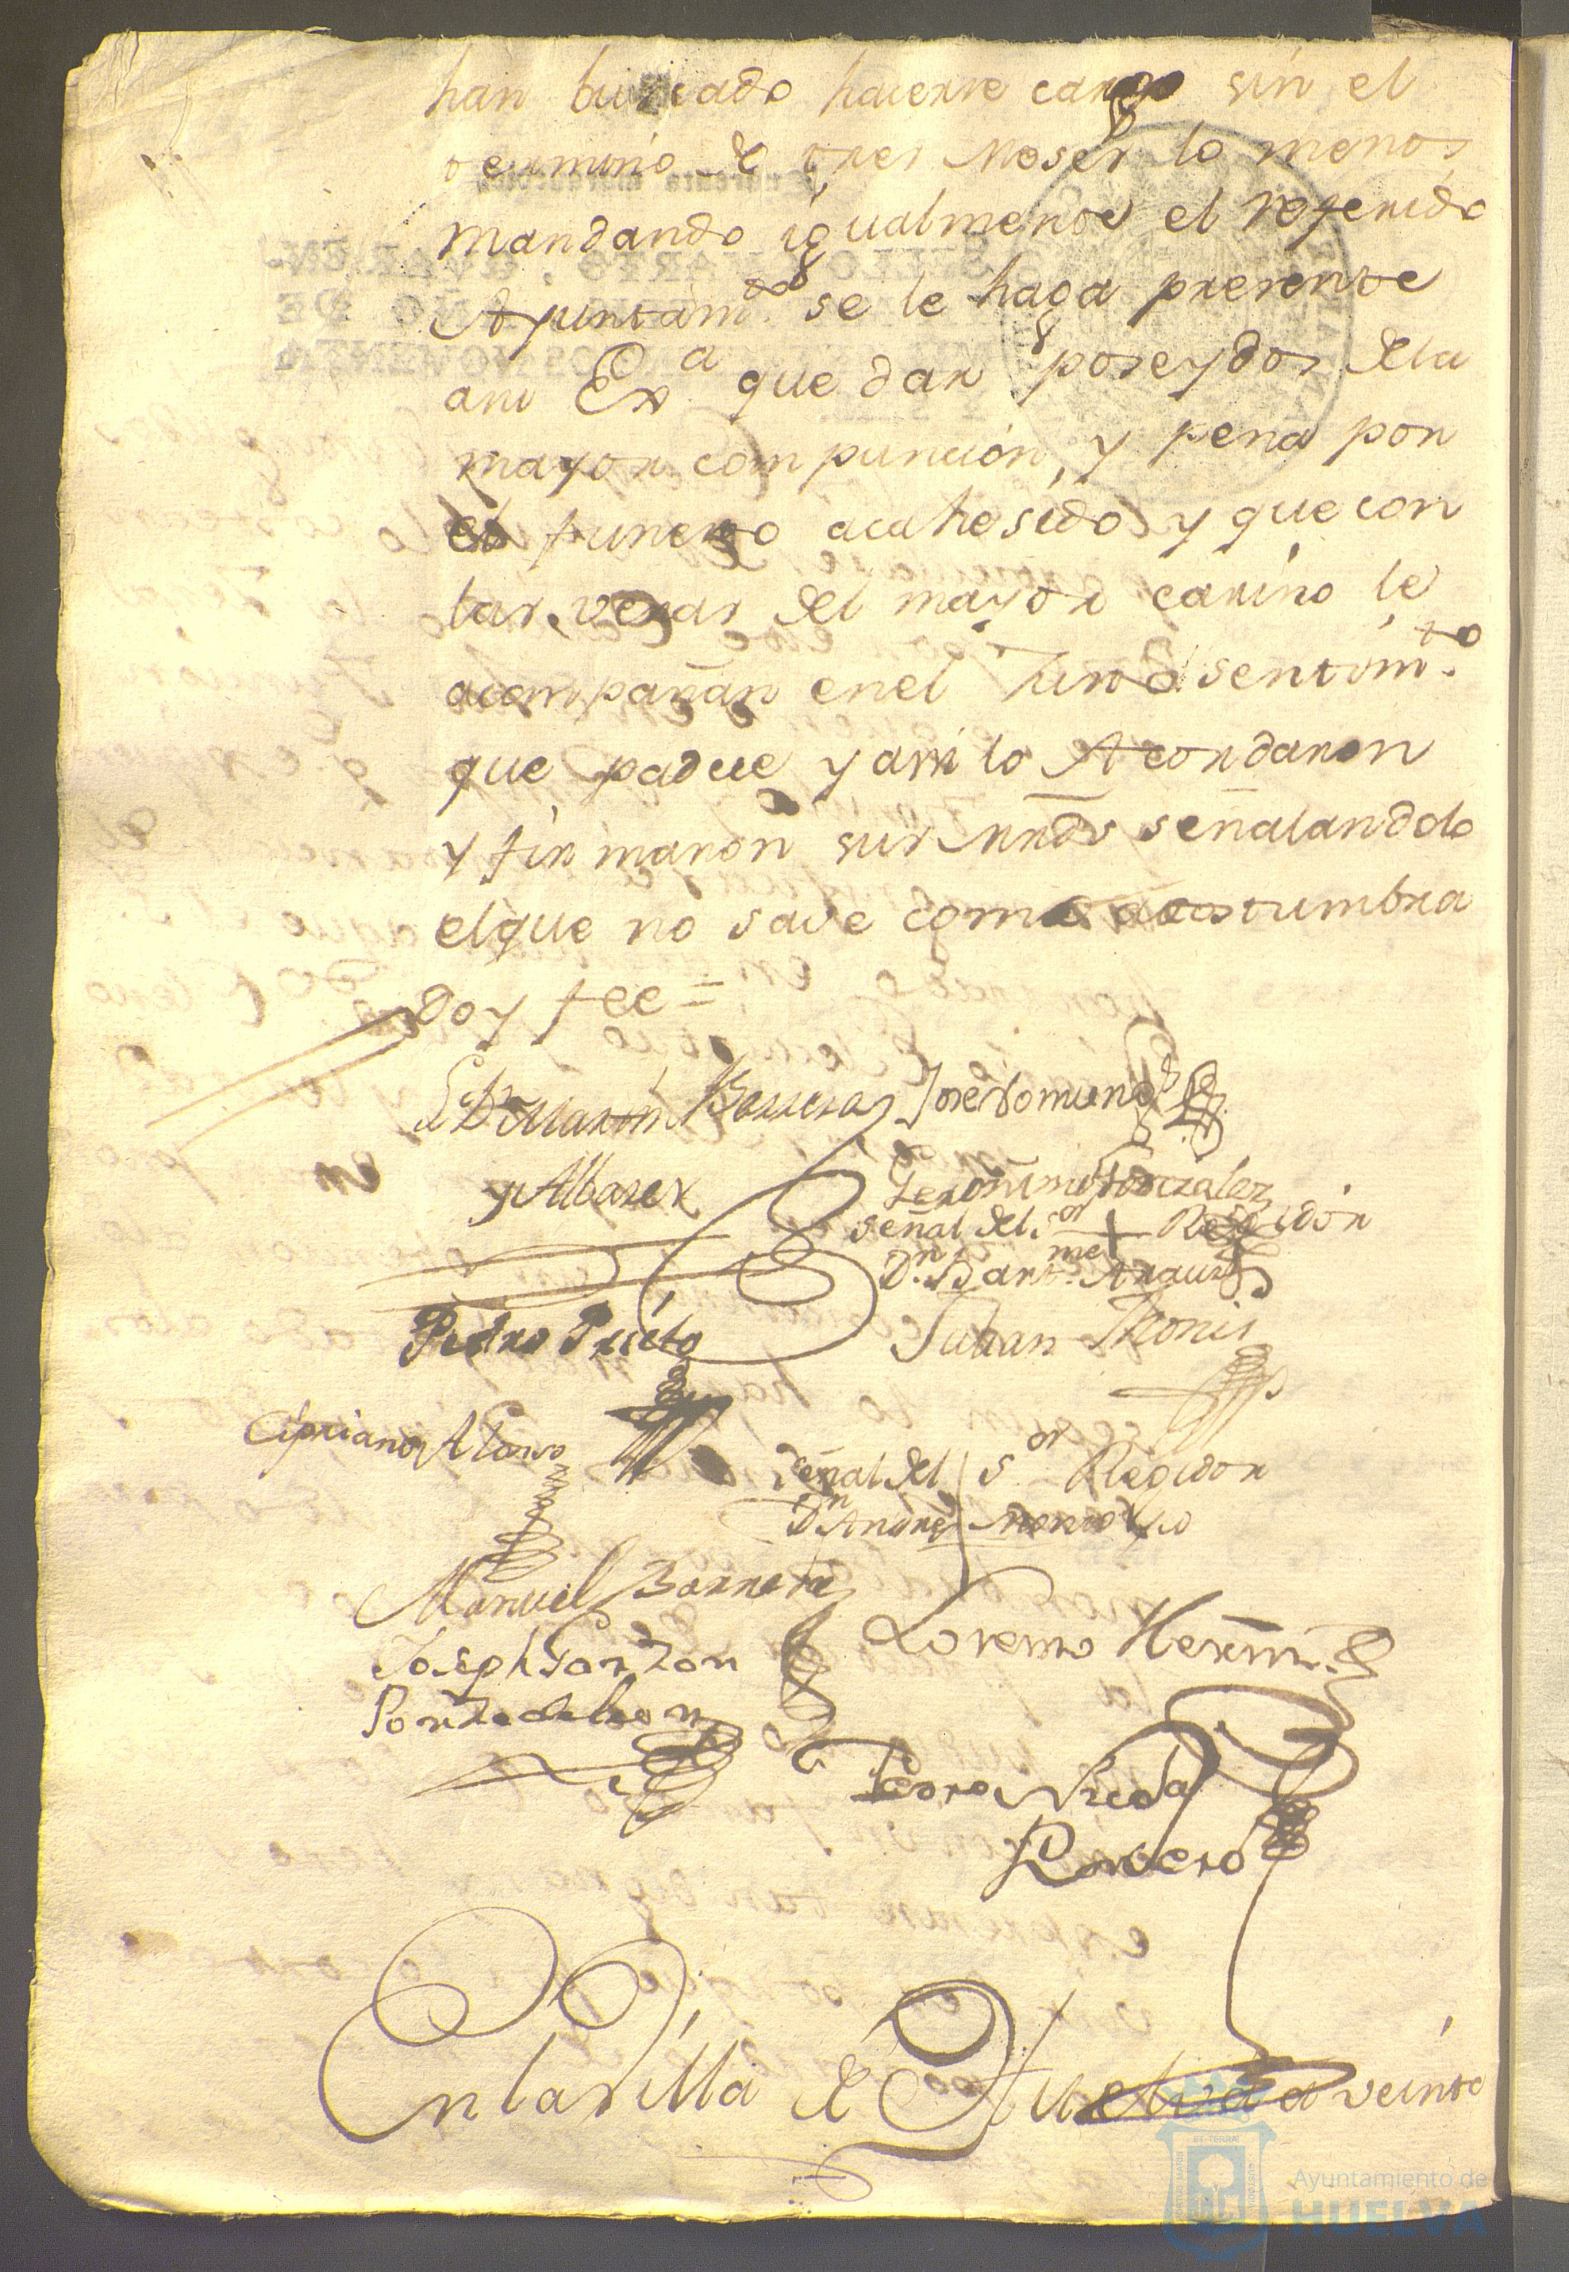 han buscado hacerse cargo sin el
termino de tres Meses lo menos
mandando igualmente el referido
Ayuntam.to se le haga presente
asu Ex.a quedar poseydos dela
mayor compuncion, y pena por
el funesto acahesido y que con
las veras del mayor cariño le
acompañan enel Justo sentim.to
que padece y asi lo Acordaron
y firmaron sus mrds señalandolo
elque no save como acostumbra
doy fee =
L.do D.n Martin Barreras
Jose Romero
y Albarez
Geronimo Gonzalez
señal del s.or + Regidor
D.n Bart.me Arauz
Pedro Prieto
Julian
Cipriano Alonso
Señal del | S.or Regidor
D.n Andres
Manuel Barrera
Lorenzo Hern.
Joseph Garzon
Ponze de leon
Pedro
Romero
En la Villa de Huelva a veinte
Ayuntamiento de
HUELVA